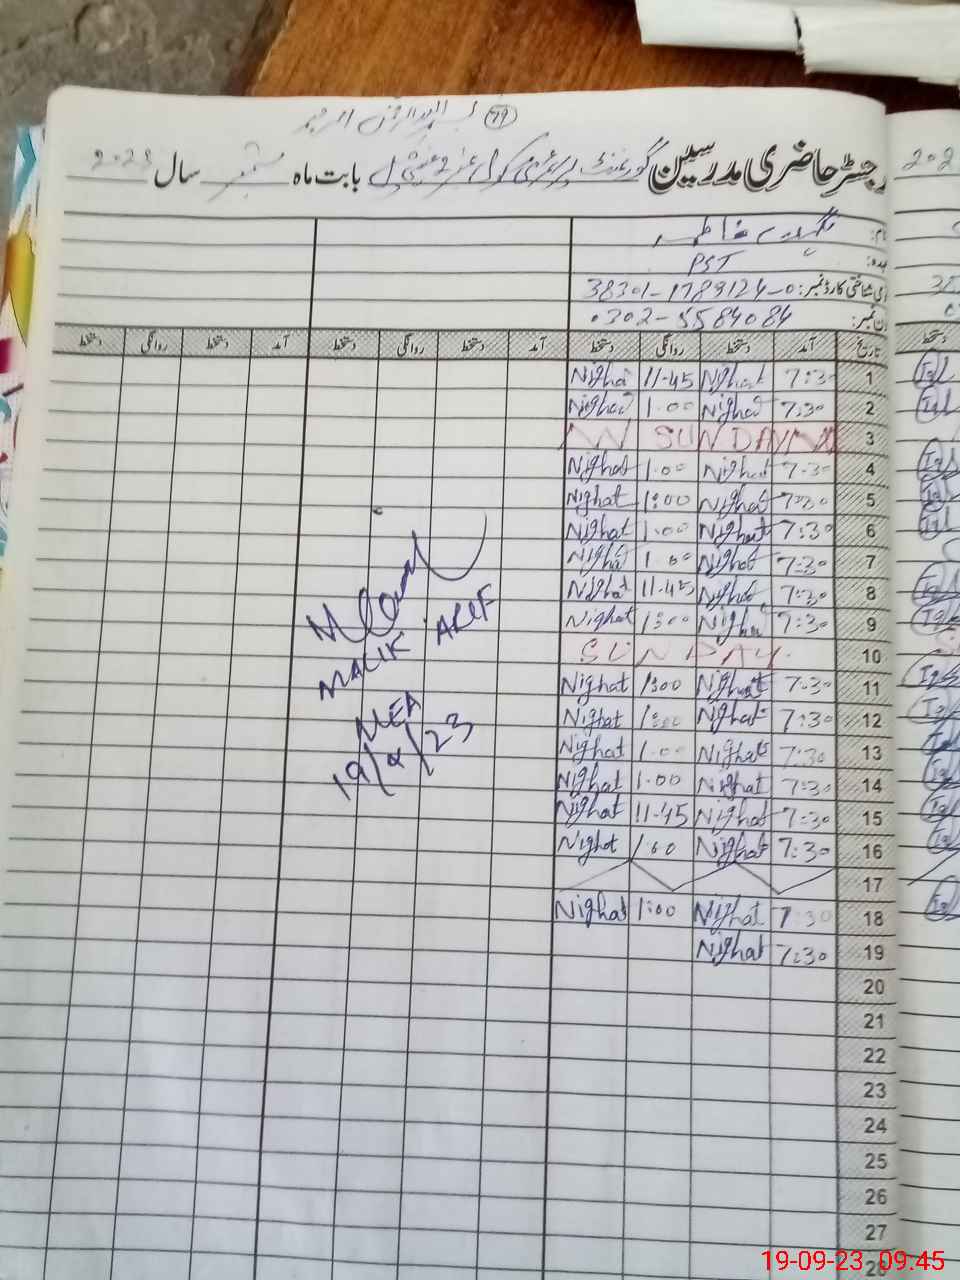 79
رجسٹر حاضری مدرسین گورنمنٹ بابت ماہ ستمبر سال 2023
نام: فاطمہ
عہدہ: PST
شناختی کارڈ نمبر: 38301-1789124-0
فون نمبر: 0302-5584084
تاریخ آمد دستخط روانگی دستخط آمد دستخط روانگی دستخط
1 7:30 Nighat 11-45 Nighat
2 7:30 Nighat 1.00 Nighat
3 SUNDAY
4 7:30 Nighat 1.00 Nighat
5 7:30 Nighat 1:00 Nighat
6 7:30 Nighat 1.00 Nighat
7 7:30 Nighat 1.00 Nighat
8 7:30 Nighat 11-45 Nighat
9 7:30 Nighat 1:00 Nighat
10 SUNDAY
11 7:30 Nighat 1:00 Nighat
12 7:30 Nighat 1:00 Nighat
13 7:30 Nighat 1.00 Nighat
14 7:30 Nighat 1.00 Nighat
15 7:30 Nighat 11-45 Nighat
16 7:30 Nighat 1.00 Nighat
17
18 7:30 Nighat 1:00 Nighat
19 7:30 Nighat
20
21
22
23
24
25
26
27
28
MALIK ARIF
MEA
19/9/23
19-09-23 09:45